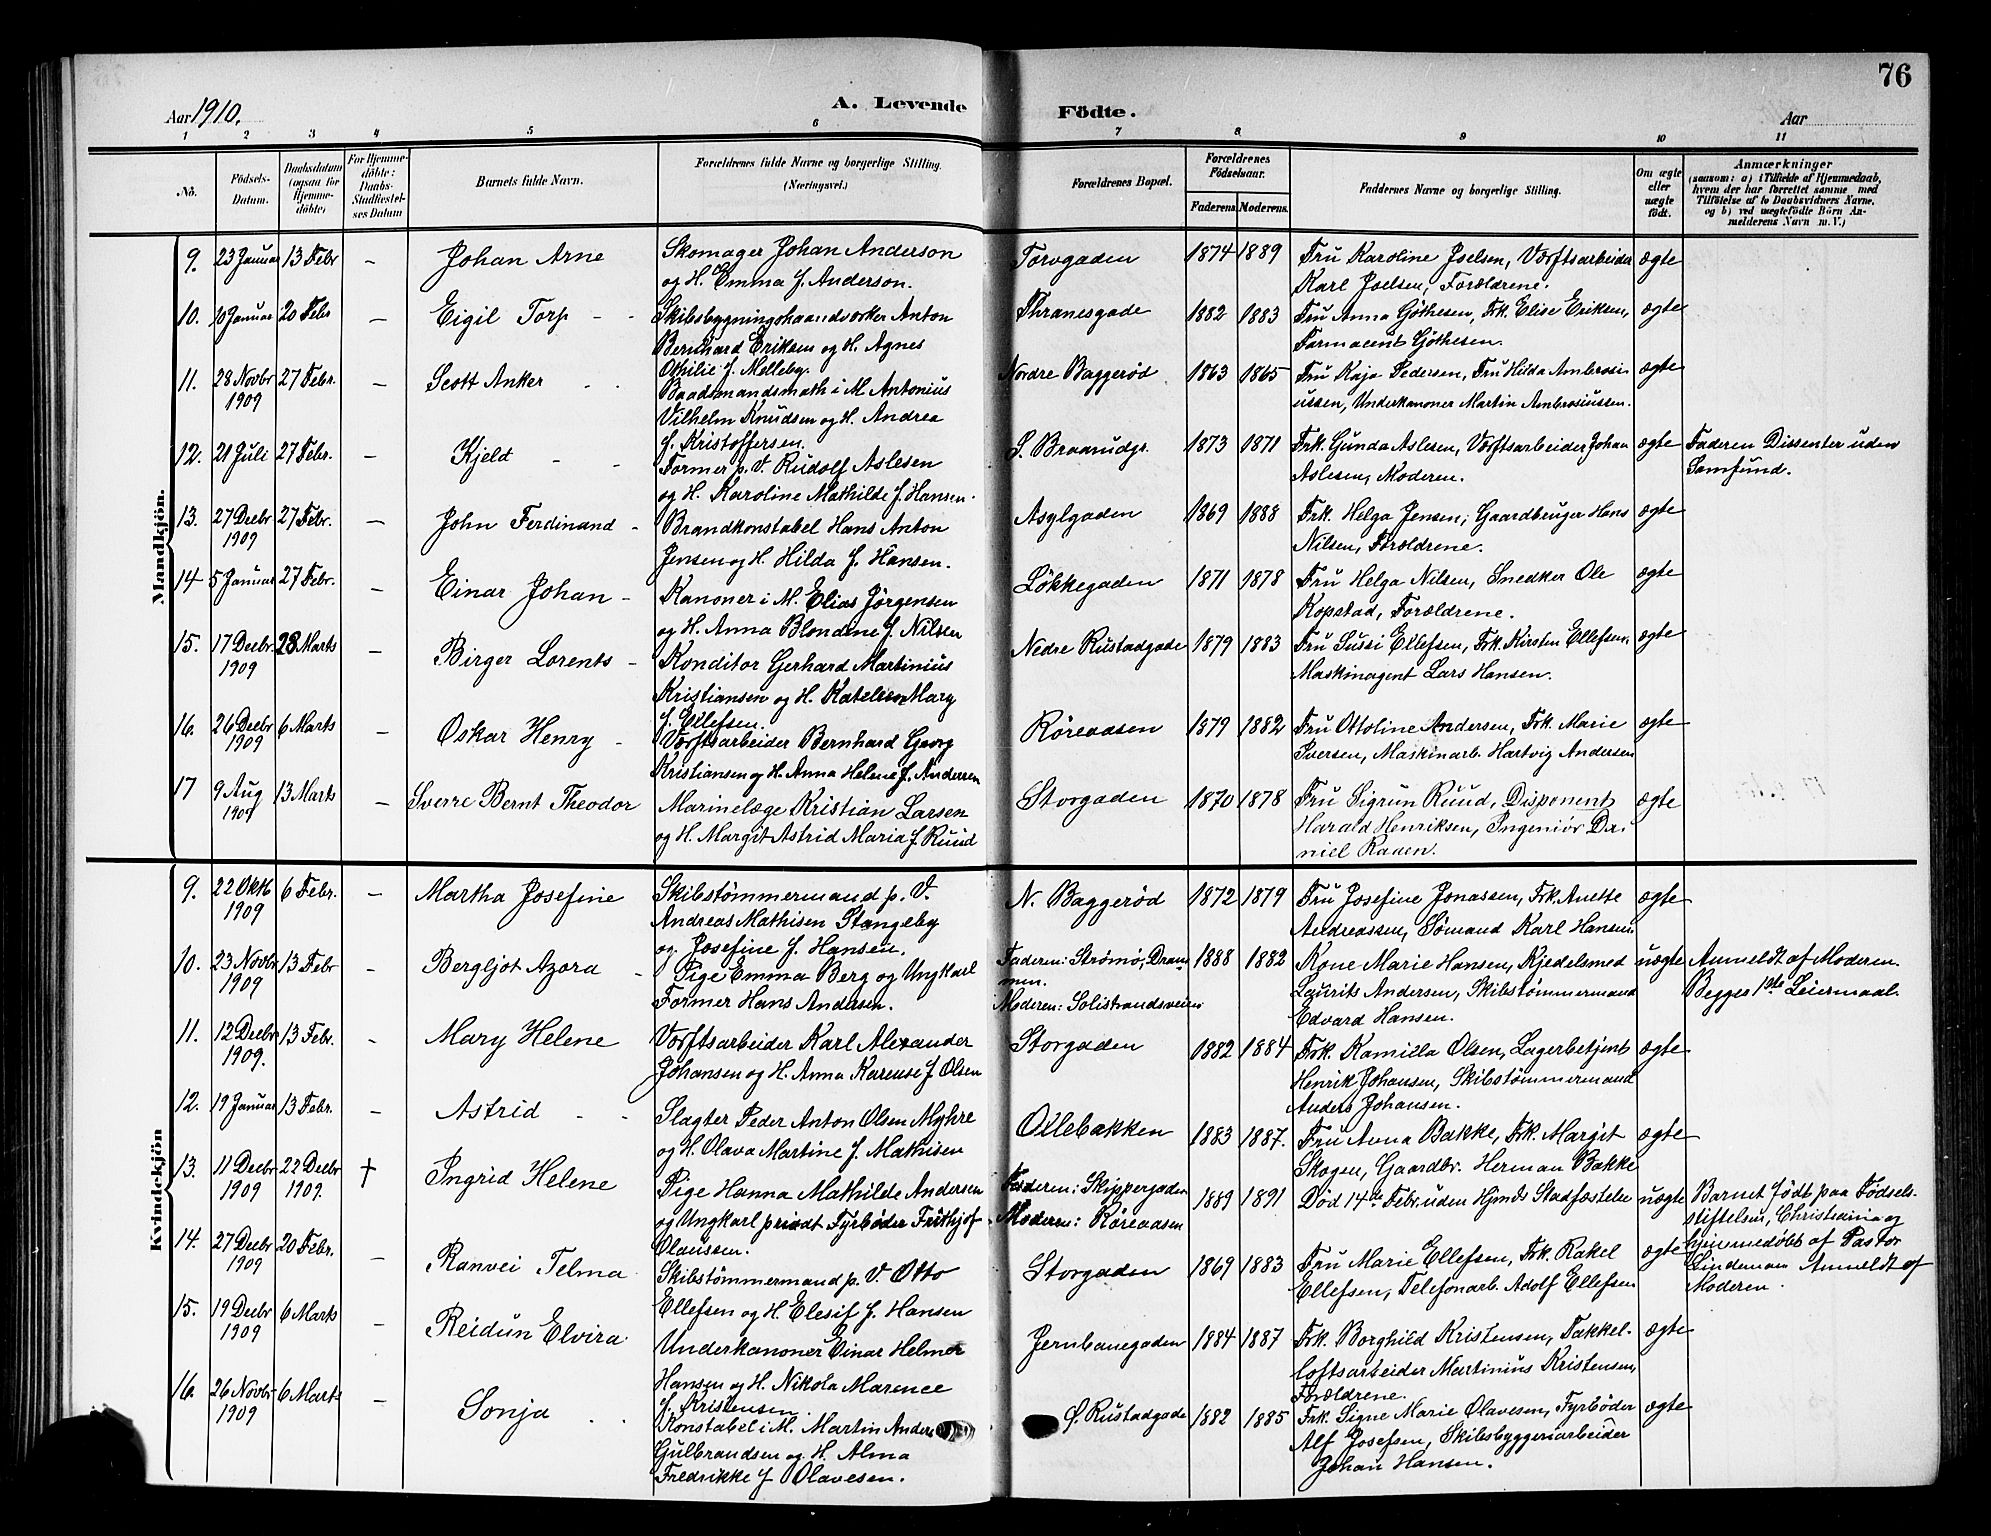 76
Aar 1910.
A. Levende
Födte.
Aar
1 2 3 4 5 6 7 8 9 10 11
No.
Födsels-
Datum.
Daabsdatum
(ogsaa for
Hjemme-
döbte)
For Hjemme-
döbte:
Daabs-
Stadfæstel-
ses Datum
Barnets fulde Navn.
Forældrenes fulde Navne og borgerlige Stilling.
(Næringsvei.)
Forældrenes Bopæl.
Forældrenes
Födselsaar.
Faderens. Moderens.
Faddernes Navne og borgerlige Stilling.
Om ægte
eller
uægte
födt.
Anmærkninger
(saasom: a) i Tilfælde af Hjemmedaab,
hvem der har forrettet samme med
Tilföielse af to Daabsvidners Navne,
og b) ved uægtefödte Börn An-
melderens Navn m. V.)
Mandkjön.
9. 23 Januar 13 Febr - Johan Arne
Skomager Johan Anderson
og H. Emma f. Anderson.
Torvgaden 1874 1889
Fru Karoline Joelsen, Værftsarbeider
Karl Joelsen, Forældrene.
ægte
10. 10 Januar 20 Febr - Eigil Torp - -
Skibsbygningshaandværker Anton
Bernhard Eriksen og H. Agnes
Othilie f. Melleby.
Thranesgade 1882 1883
Fru Anna Göthesen, Frk. Elise Eriksen,
Farmaceut Göthesen.
ægte
11. 28 Novbr 1909 27 Febr. - Scott Anker - -
Baadsmandsmath i M. Antonius
Vilhelm Knudsen og H. Andrea
f. Kristoffersen.
Nordre Baggeröd 1863 1865
Fru Kaja Pedersen, Fru Hilda Ambrosi-
ussen, Underkanoner Martin Ambrosiussen.
ægte
12. 21 Juli 27 Febr. - Kjeld - -
Former p. V. Rudolf Aslesen
og H. Karoline Mathilde f. Hansen.
S. Braarudgr. 1873 1871
Frk. Gunda Aslesen, Værftsarbeider Johan
Aslesen, Moderen.
ægte
Faderen Dissenter uden
Samfund.
13. 27 Decbr 1909 27 Febr. - John Ferdinand -
Brandkonstabel Hans Anton
Jensen og H. Hilda f. Hansen.
Asylgaden 1869 1888
Frk. Helga Jensen, Gaardbruger Hans
Nilsen, Forældrene.
ægte
14 5 Januar 27 Febr. - Einar Johan -
Kanoner i M. Elias Jörgensen
og H. Anna Blondine f. Nilsen
Løkkegaden 1871 1878
Fru Helga Nilsen, Snedker Ole
Kopstad, Forældrene.
ægte
15. 17 Decbr. 1909 28 Marts - Birger Lorents -
Konditor Gerhard Martinius
Kristiansen og H. Katellen Mary
f. Ellefsen.
Nedre Rustadgade 1879 1883
Fru Sussi Ellefsen, Frk. Kirsten Ellefsen,
Maskinagent Lars Hansen.
ægte
16. 26 Decbr 1909 6 Marts - Oskar Henry -
Værftsarbeider Bernhard Georg
Kristiansen og H. Anna Helene f. Andersen
Röreaasen 1879 1882
Fru Ottoline Andersen, Frk. Marie
Iversen, Maskinarb. Hartvig Andersen
ægte
17 9 Aug 1909 13 Marts - Sverre Bernt Theodor
Marinelæge Kristian Larsen
og H. Margit Astrid Maria f. Ruud
Storgaden 1870 1878
Fru Sigrun Ruud, Disponent
Harald Henriksen, Ingeniör Da-
niel Raaen.
ægte
Kvindekjön
9. 22 Oktb 1909 6 Febr. - Martha Josefine
Skibstømmermand p. V.
Andreas Mathisen Stangeby
og Josefine f. Hansen.
N. Baggeröd 1872 1879
Fru Josefine Jonassen, Frk. Anette
Andreassen, Sömand Karl Hansen
ægte
10. 23 Novbr 1909 13 Febr - Bergljot Azora -
Pige Emma Berg og Ungkarl
Former Hans Andersen.
Faderen: Strömö, Dram-
men.
Moderen: Solistrandsveien
1888 1882
Kone Marie Hansen, Kjedelsmed
Laurits Andersen, Skibstømmermand
Edvard Hansen.
uægte
Anmeldt af Moderen.
Begges 1ste Leiermaal.
11. 12 Decbr 1909. 13 Febr. - Mary Helene
Værftsarbeider Karl Alexander
Johansen og H. Anna Karense f. Olsen
Storgaden 1882 1884
Frk. Kamilla Olsen, Lagerbetjent
Henrik Johansen, Skibstømmermand
Anders Johansen.
ægte
12. 19 Januar 13 Febr. - Astrid - -
Slagter Peder Anton Olsen Myhre
og H. Olava Martine f. Mathisen
Ollebakken 1883 1887.
Fru Anna Bakke, Frk. Margit
Skogen, Gaardbr. Herman Bakke
ægte
13. 11 Decbr 1909 22 Decbr 1909. † Ingrid Helene
Pige Hanna Mathilde Andersen
og Ungkarl privat Fyrböder Frithjof
Olaussen.
Faderen: Skippergaden
Moderen: Röreaasen
1889 1891
Död 14de Febr. uden Hjmds Stadfæstelse
uægte
Barnet födt paa Fødsels-
stiftelsen, Christiania og
hjemmedöbt af Pastor
Lindeman Anmeldt af
Moderen.
14. 27 Decbr 1909 20 Febr. - Ranvei Telma
Skibstømmermand p. V. Otto
Ellefsen og H. Elesif f. Hansen
Storgaden 1869 1883
Fru Marie Ellefsen, Frk. Rakel
Ellefsen, Telefonarb. Adolf Ellefsen
ægte
15. 19 Decbr 1909 6 Marts - Reidun Elvira
Underkanoner Einar Helmer
Hansen og H. Nikola Marence
f. Kristensen
Jernbanegaden 1884 1887
Frk. Borghild Kristensen, Takkel-
loftsarbeider Martinius Kristensen,
Forældrene.
ægte
16. 26 Novbr 1909 6 Marts - Sonja - -
Konstabel i M. Martin Anders
Gulbrandsen og H. Alma
Fredrikke f Olavesen.
Ø. Rustadgade 1882 1885
Frk. Signe Marie Olavesen, Fyrböder
Alf Josefsen, Skibsbyggeriarbeider
Johan Hansen.
ægte